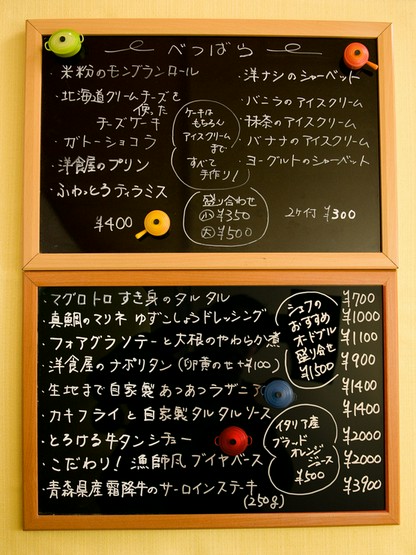 べつばら
・米粉のモンブランロール
・北海道クリームチーズを
使った
チーズケーキ
・ガトーショコラ
・洋食屋のプリン
・ふわっとろティラミス
¥400
ケーキは
もちろん
アイスクリーム
まで
すべて
手作り!
盛り合わせ
小 ¥350
大 ¥500
・洋ナシのシャーベット
・バニラのアイスクリーム
・抹茶のアイスクリーム
・バナナのアイスクリーム
・ヨーグルトのシャーベット
2ケ付 ¥300
・マグロトロ すき身のタルタル ¥700
・真鯛のマリネ ゆずこしょうドレッシング ¥1000
・フォアグラソテーと大根のやわらか煮 ¥1100
・洋食屋のナポリタン (卵黄のせ+¥100) ¥900
・生地まで自家製あつあつラザニア ¥1400
・カキフライと自家製タルタルソース ¥1400
・とろける牛タンシチュー ¥2000
・こだわり!漁師風ブイヤベース ¥2000
・青森県産霜降牛のサーロインステーキ ¥3900
(250g)
シェフの
おすすめ
オードブル
盛り合せ
¥1500
イタリア産
ブラッド
オレンジ
ジュース
¥500